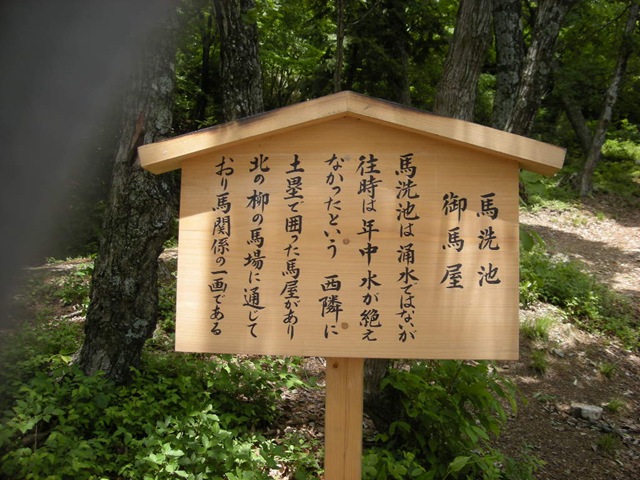 馬洗池
御馬屋
馬洗池は涌水ではないが
往時は年中水が絶え
なかったという 西隣に
土塁で囲った馬屋があり
北の柳の馬場に通じて
おり馬関係の一画である